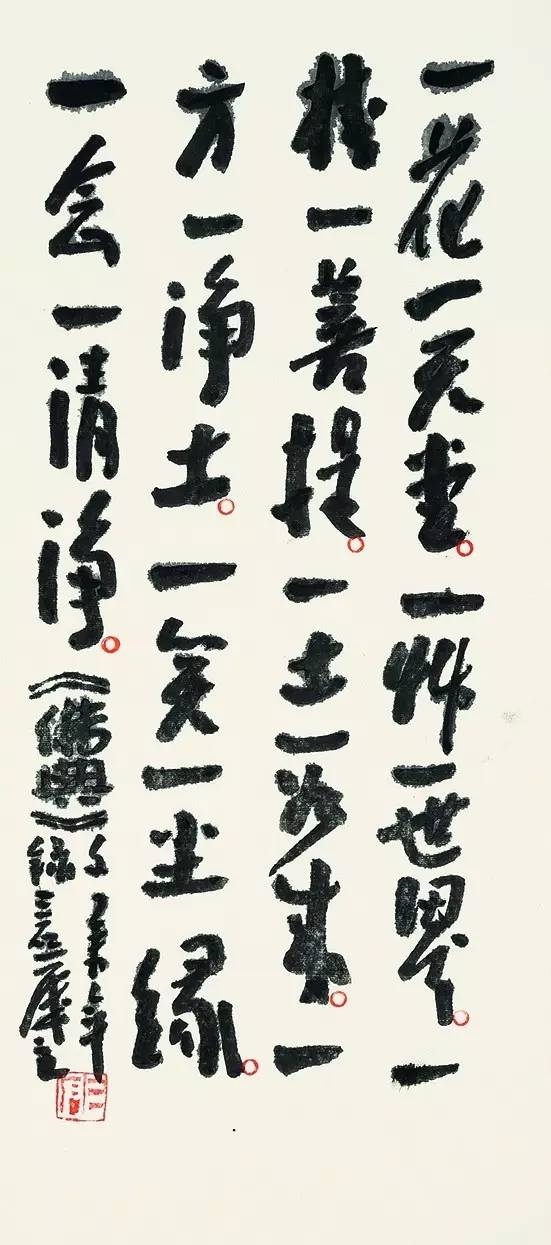 一花一天堂。一艸一世界。一
树一菩提。一土一如来。一
方一净土。一笑一尘缘。
一念一清净。《佛典》